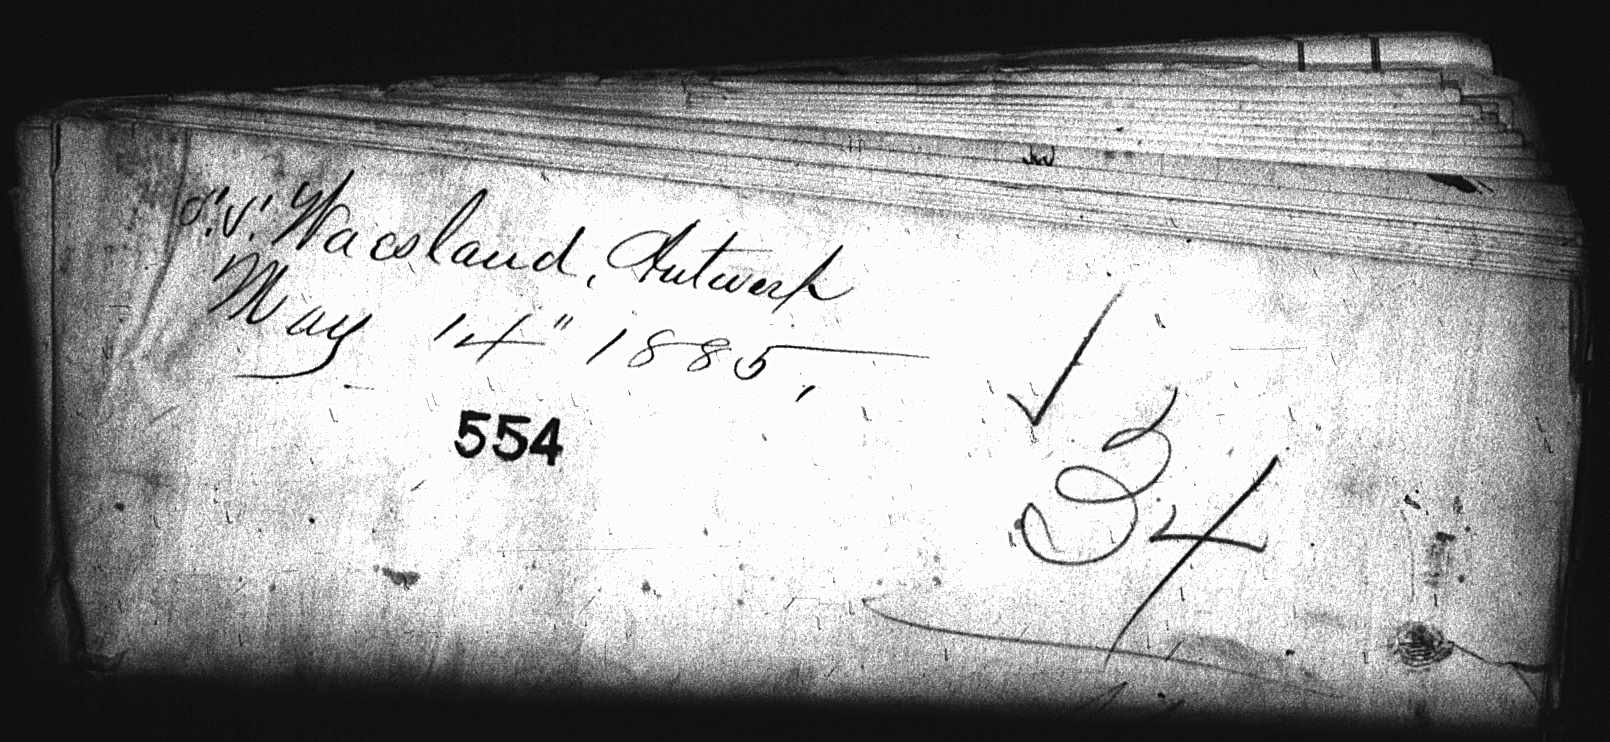 S.S. Waesland, Antwerp
May 14" 1885,
554
34